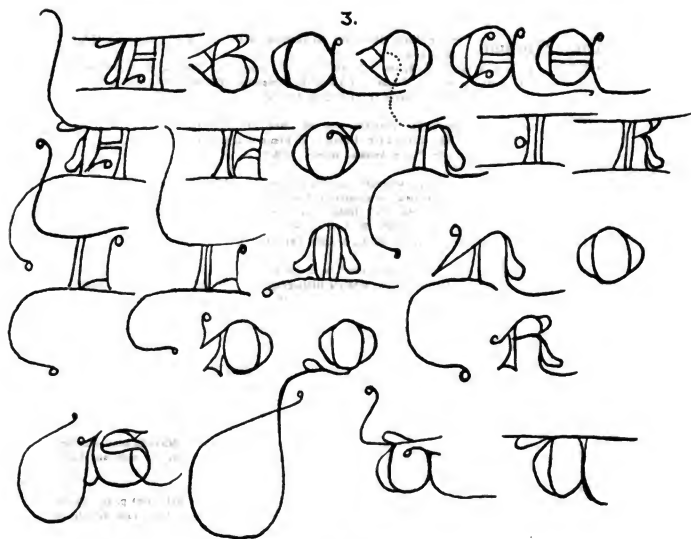 3.
A B C D E E
F F G H I K
L L M N O
P Q R
S T U